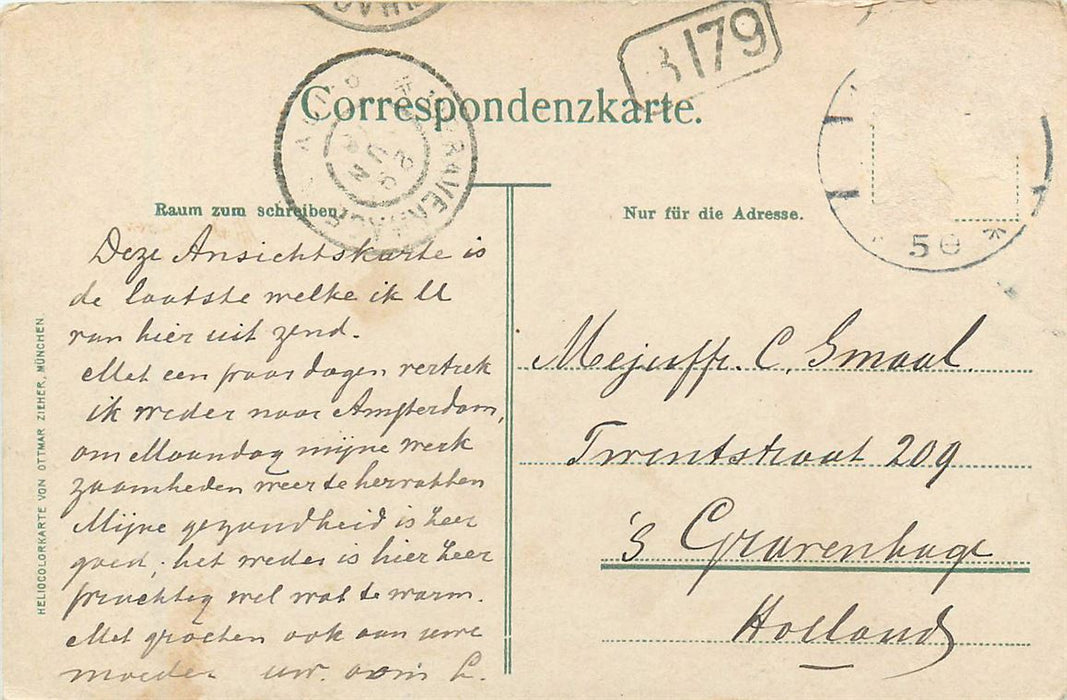 3179
Correspondenzkarte.
Raum zum schreiben.
Nur für die Adresse.
50 *
Deze Ansichtskarte is
de laatste welke ik U
van hier uit zend.
Met een paar dagen vertrek
ik weder naar Amsterdam,
om Maandag mijne werk
zaamheden weer te hervatten
Mijne gezondheid is zeer
goed; het weder is hier zeer
prachtig wel wat te warm.
Met groeten ook aan uwe
moeder uw. oom L.
Mejuffr. C. Smaal.
Twentstraat 209
's Gravenhage
Holland
HELIOCOLORKARTE VON OTTMAR ZIEHER, MÜNCHEN